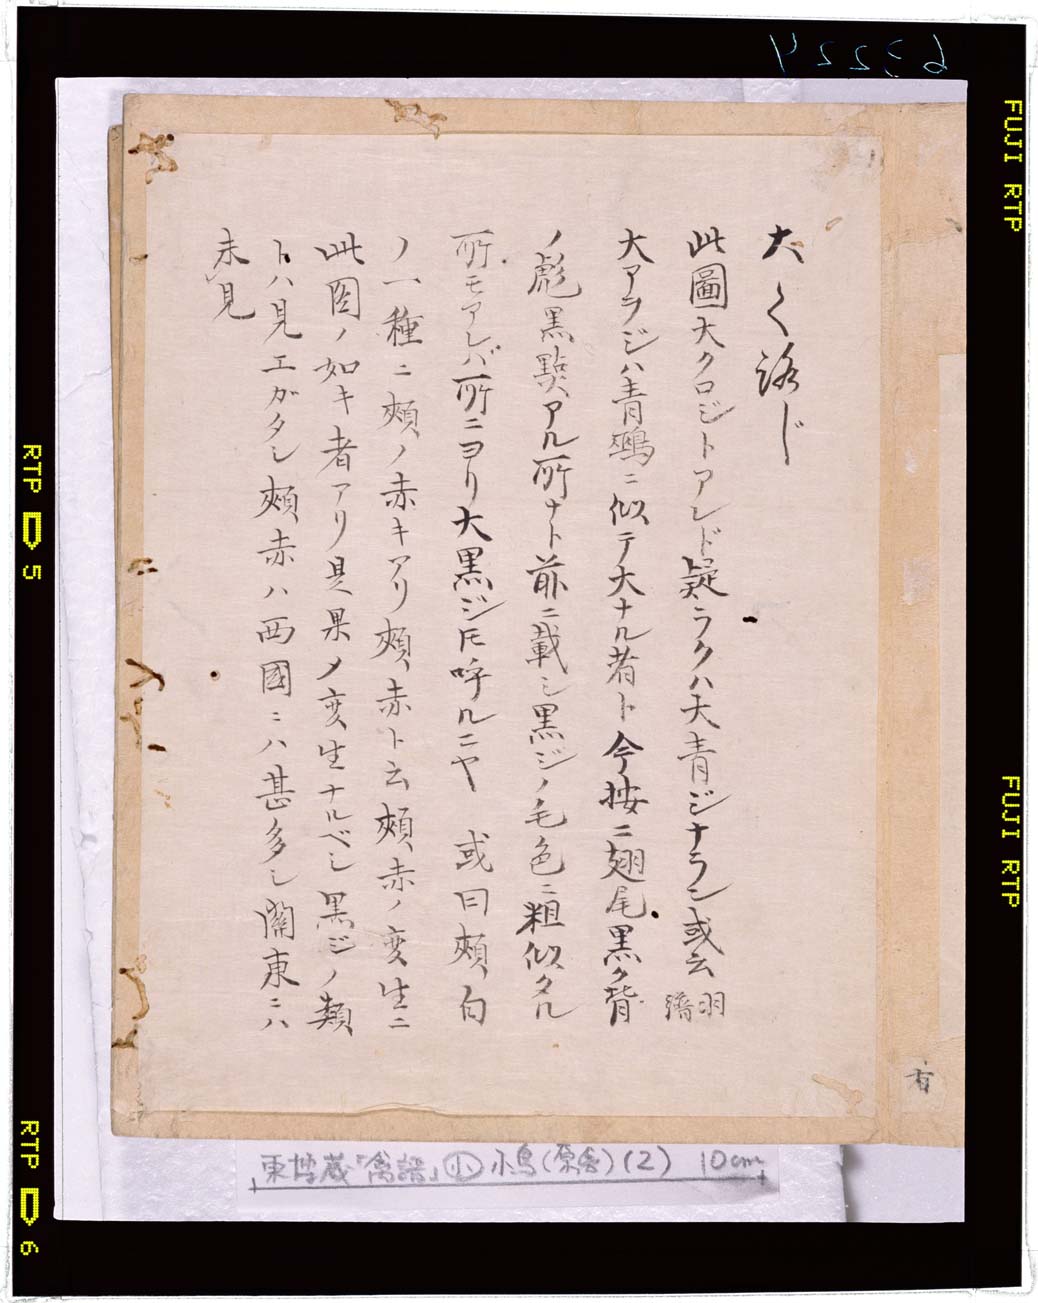 大く露じ
此圖大クロジトアレド疑ラクハ大青ジナラン或云
大アヲジハ青鵐ニ似テ大ナル者ト今按ニ翅尾黒ク背
ノ彪黒點アル所ナト前ニ載シ黒ジノ毛色ニ粗似タル
所モアレバ所ニヨリ大黒ジトモ呼ルニヤ 或曰頰白
ノ一種ニ頰ノ赤キアリ頰赤ト云頰赤ノ変生ニ
此図ノ如キ者アリ是果メ変生ナルベシ黒ジノ類
トハ見エガタシ頰赤ハ西國ニハ甚多シ関東ニハ
未見
東博蔵「禽譜」小 小鳥(原舎)(2) 10cm
63224
FUJI RTP
FUJI RTP
RTP 5
RTP 6